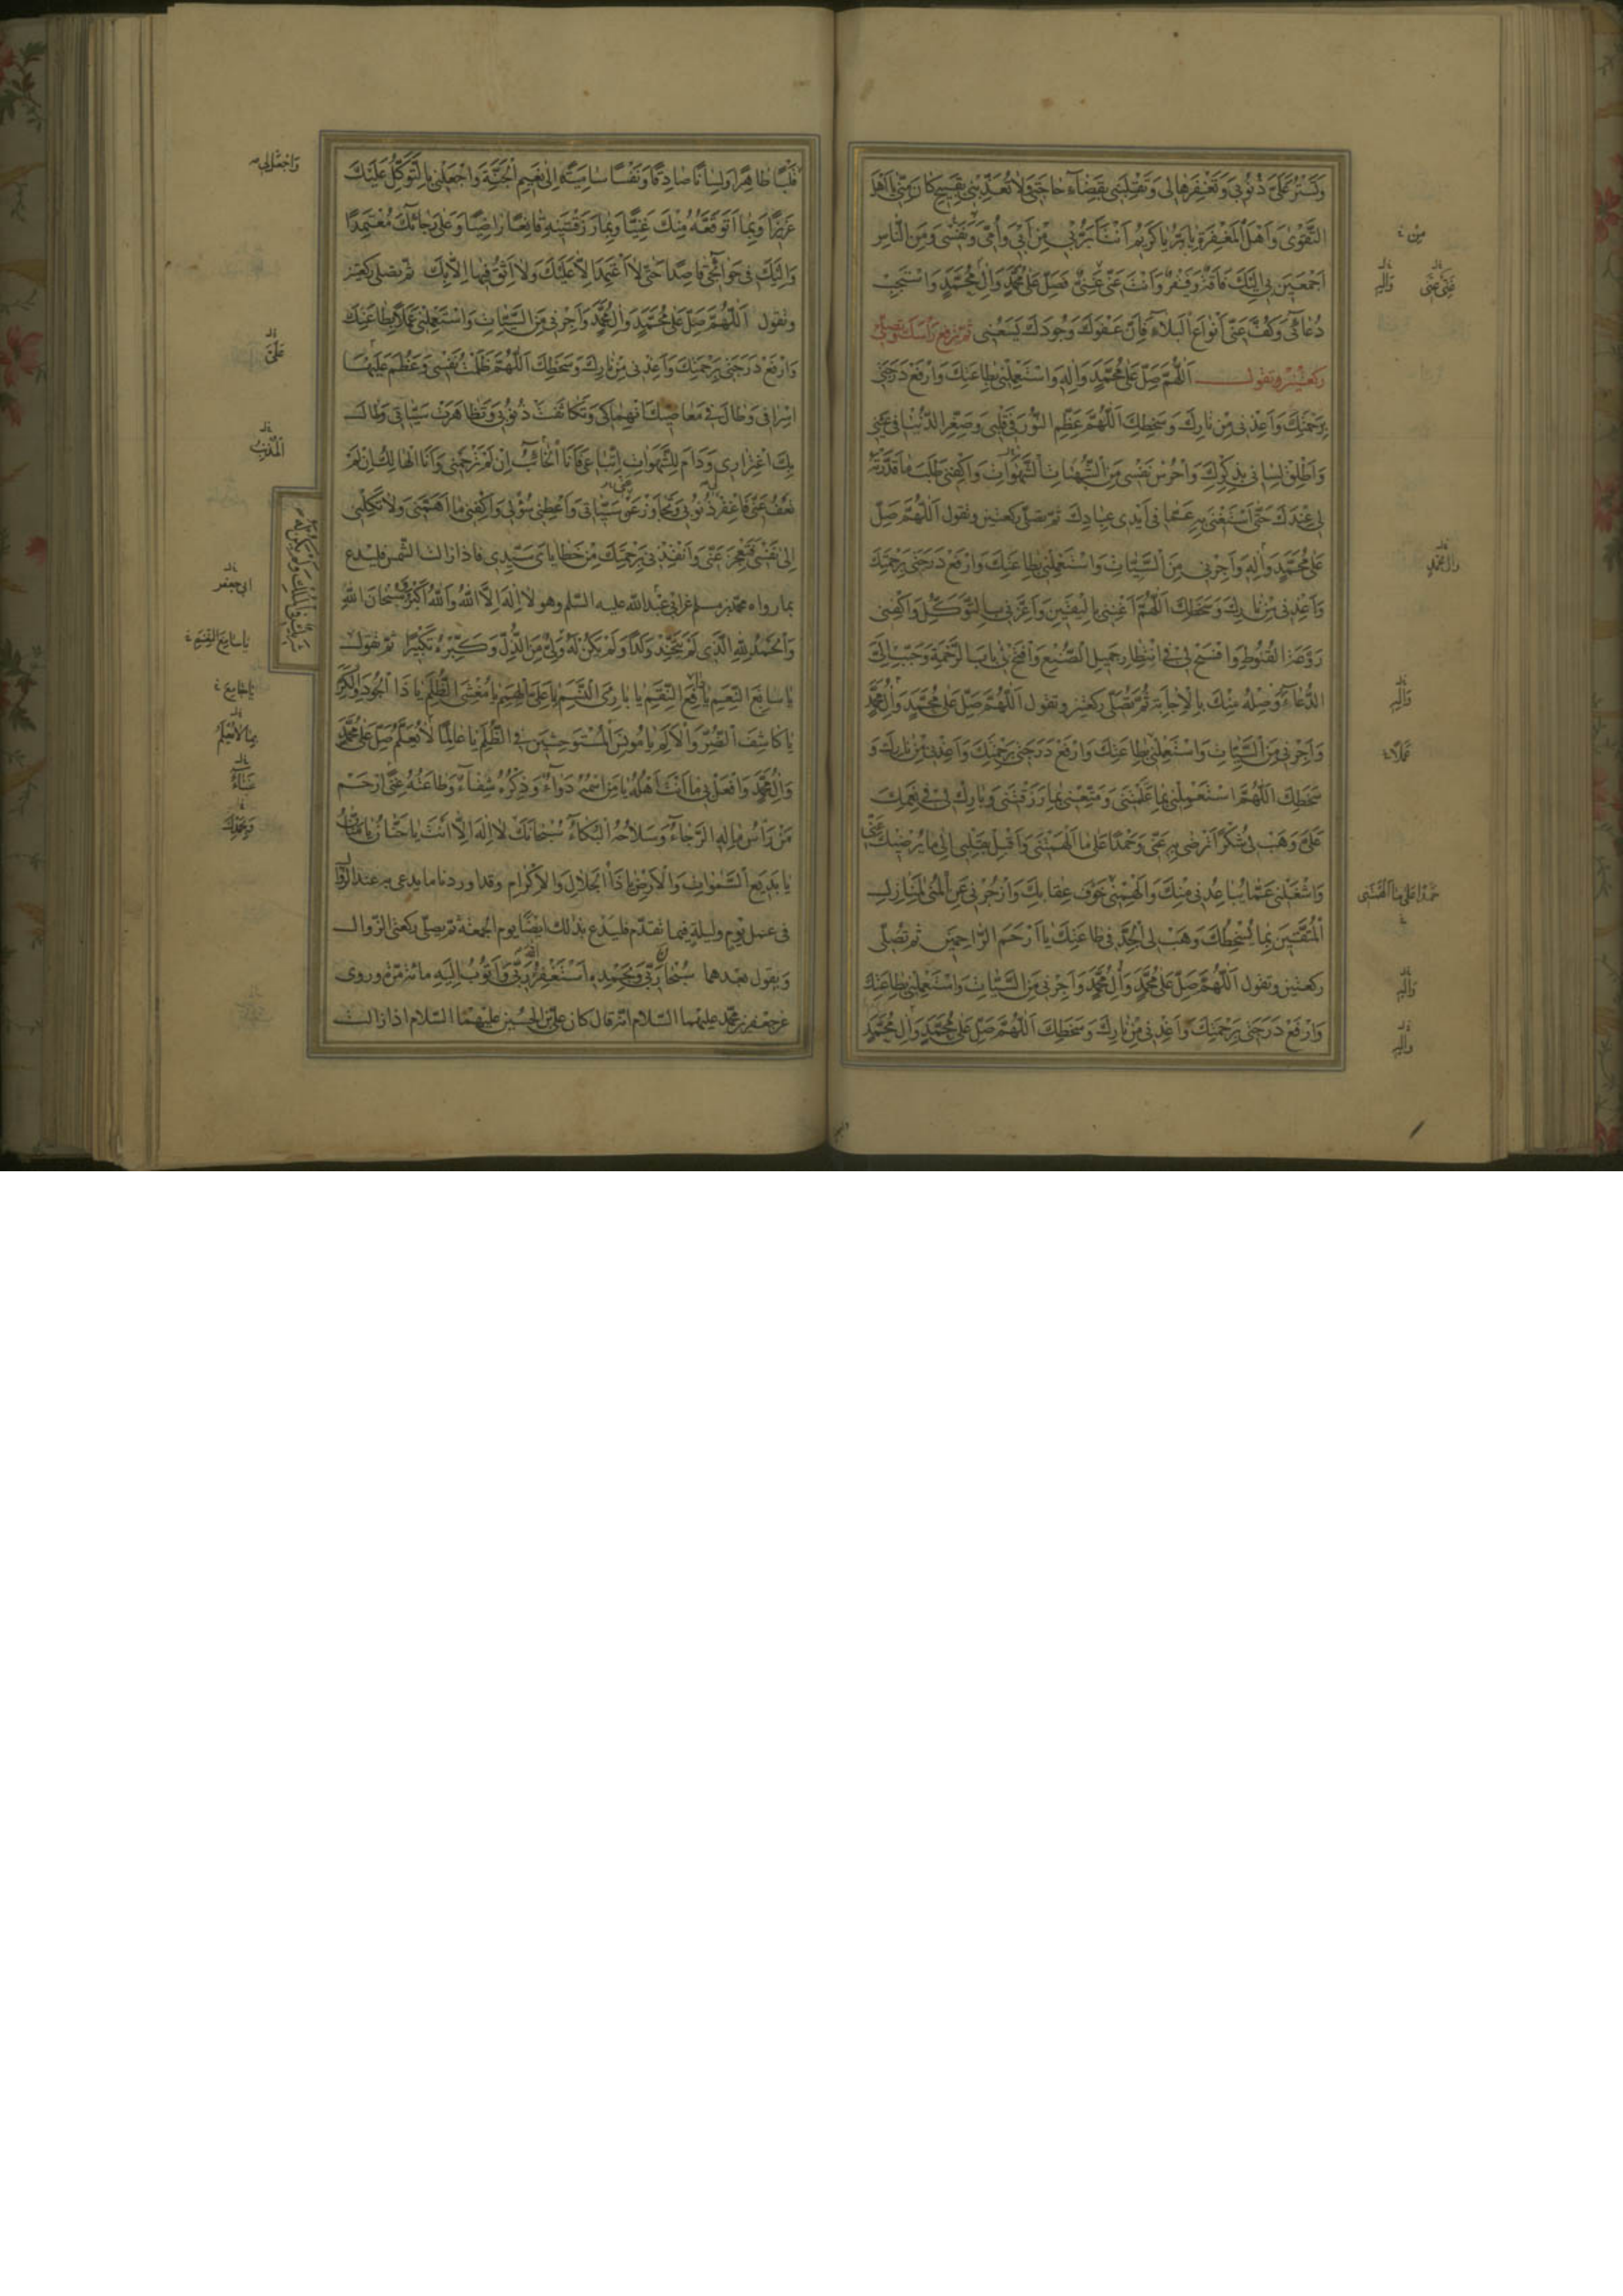 وَتَسْتُرُ عَلَیَّ ذُنُوبی وَتَغْفِرَهَا لی وَتَقْلِبَنی بِقَضَاءِ حَاجَتی وَلَا تُعَذِّبْنی بِقَبِیحٍ کَانَ مِنّی یَا اَهْلَ
التَّقْوَی وَاَهْلَ الْمَغْفِرَةِ یَا بَرُّ یَا کَرِیمُ اَنْتَ اَبَرُّ بی مِنْ اَبی وَاُمّی وَنَفْسی وَمِنَ النَّاسِ
اَجْمَعِینَ بی اِلَیْکَ فَاقَةٌ وَفَقْرٌ وَاَنْتَ عَنّی غَنِیٌّ فَصَلِّ عَلَی مُحَمَّدٍ وَاٰلِ مُحَمَّدٍ وَاسْتَجِبْ
دُعَائی وَکُفَّ عَنّی اَنْوَاعَ الْبَلَاءِ فَاِنَّ عَفْوَکَ وَجُودَکَ یَسَعُنی ثم ترفع رأسک وتصلی
رکعتین وتقول اَللّٰهُمَّ صَلِّ عَلَی مُحَمَّدٍ وَاٰلِهِ وَاسْتَعْمِلْنی بِطَاعَتِکَ وَارْفَعْ دَرَجَتی
بِرَحْمَتِکَ وَاَعِذْنی مِنْ نَارِکَ وَسَخَطِکَ اَللّٰهُمَّ عَظِّمِ النُّورَ فی قَلْبی وَصَغِّرِ الدُّنْیَا فی عَیْنی
وَاَطْلِقْ لِسَانی بِذِکْرِکَ وَاحْرُسْ نَفْسی مِنَ الشَّهَوَاتِ وَاکْفِنی طَلَبَ مَا قَدَّرْتَهُ
لی عِنْدَکَ حَتّٰی اَسْتَغْنی بِهِ عَمَّا فی اَیْدی عِبَادِکَ ثم تصلی رکعتین وتقول اَللّٰهُمَّ صَلِّ
عَلَی مُحَمَّدٍ وَاٰلِهِ وَاَجِرْنی مِنَ السَّیِّئَاتِ وَاسْتَعْمِلْنی بِطَاعَتِکَ وَارْفَعْ دَرَجَتی بِرَحْمَتِکَ
وَاَعِذْنی مِنْ نَارِکَ وَسَخَطِکَ اَللّٰهُمَّ اَغْنِنی بِالْیَقِینِ وَاَعِزَّنی بِالتَّوَکُّلِ وَاکْفِنی
رَوْعَةَ الْقُنُوطِ وَافْسَحْ لی فی انْتِظَارِ جَمِیلِ الصُّنْعِ وَافْتَحْ لی بَابَ الرَّحْمَةِ وَحَبِّبْ اِلَیَّ
الدُّعَاءَ وَصِلْهُ مِنْکَ بِالْاِجَابَةِ ثم تصلی رکعتین وتقول اَللّٰهُمَّ صَلِّ عَلَی مُحَمَّدٍ وَاٰلِ مُحَمَّدٍ
وَاَجِرْنی مِنَ السَّیِّئَاتِ وَاسْتَعْمِلْنی بِطَاعَتِکَ وَارْفَعْ دَرَجَتی بِرَحْمَتِکَ وَاَعِذْنی مِنْ نَارِکَ وَ
سَخَطِکَ اَللّٰهُمَّ اسْتَعْمِلْنی بِمَا عَلَّمْتَنی وَمَتِّعْنی بِمَا رَزَقْتَنی وَبَارِکْ لی فی نِعَمِکَ
عَلَیَّ وَهَبْ لی شُکْرًا تَرْضَی بِهِ عَنّی وَحَمْدًا عَلَی مَا اَلْهَمْتَنی وَاَقْبِلْ بِقَلْبی اِلَی مَا یُرْضِیکَ عَنّی
وَاشْغَلْنی عَمَّا یُبَاعِدُنی مِنْکَ وَاَلْهِمْنی خَوْفَ عِقَابِکَ وَازْجُرْنی عَنِ الْمُنَی لِمَنَازِلِ
الْمُتَّقِینَ بِمَا یُسْخِطُکَ وَهَبْ لی الْجِدَّ فی طَاعَتِکَ یَا اَرْحَمَ الرَّاحِمِینَ ثم تصلی
رکعتین وتقول اَللّٰهُمَّ صَلِّ عَلَی مُحَمَّدٍ وَاٰلِ مُحَمَّدٍ وَاَجِرْنی مِنَ السَّیِّئَاتِ وَاسْتَعْمِلْنی بِطَاعَتِکَ
وَارْفَعْ دَرَجَتی بِرَحْمَتِکَ وَاَعِذْنی مِنْ نَارِکَ وَسَخَطِکَ اَللّٰهُمَّ صَلِّ عَلَی مُحَمَّدٍ وَاٰلِ مُحَمَّدٍ
مِن
عَنّی عَنّی
وَاٰلِهِ
واٰلِ مُحَمَّدٍ
وَاٰلِهِ
عَمَلًا
حَمْدًا عَلَی مَا اَلْهَمْتَنی
وَاٰلِهِ
وَاٰلِهِ
قَلْبًا طَاهِرًا وَلِسَانًا صَادِقًا وَنَفْسًا سَامِیَةً اِلَی نَعِیمِ الْجَنَّةِ وَاجْعَلْنی بِالتَّوَکُّلِ عَلَیْکَ
عَزِیزًا وَبِمَا اَتَوَقَّعُهُ مِنْکَ غَنِیًّا وَبِمَا رَزَقْتَنِیهِ قَانِعًا رَاضِیًا وَعَلَی رَجَائِکَ مُعْتَمِدًا
وَاِلَیْکَ فی حَوَائِجی قَاصِدًا حَتّٰی لَا اَعْتَمِدَ اِلَّا عَلَیْکَ وَلَا اَثِقَ فِیهَا اِلَّا بِکَ ثم تصلی رکعتین
وتقول اَللّٰهُمَّ صَلِّ عَلَی مُحَمَّدٍ وَاٰلِ مُحَمَّدٍ وَاَجِرْنی مِنَ السَّیِّئَاتِ وَاسْتَعْمِلْنی عَمَلًا بِطَاعَتِکَ
وَارْفَعْ دَرَجَتی بِرَحْمَتِکَ وَاَعِذْنی مِنْ نَارِکَ وَسَخَطِکَ اَللّٰهُمَّ ظَلَمْتُ نَفْسی وَعَظُمَ عَلَیْهَا
اِسْرَافی وَطَالَ فی مَعَاصِیکَ انْهِمَاکی وَتَکَاثَفَتْ ذُنُوبی وَتَظَاهَرَتْ سَیِّئَاتی وَطَالَ
بِکَ اغْتِرَاری وَدَامَ لِلشَّهَوَاتِ اتِّبَاعی فَاَنَا الْخَائِبُ اِنْ لَمْ تَرْحَمْنی وَاَنَا الْهَالِکُ اِنْ لَمْ
تَعْفُ عَنّی فَاغْفِرْ ذُنُوبی وَتَجَاوَزْ عَنْ سَیِّئَاتی وَاَعْطِنی سُؤْلی وَاکْفِنی مَا اَهَمَّنی وَلَا تَکِلْنی
اِلَی نَفْسی فَتَعْجِزَ عَنّی وَاَنْقِذْنی بِرَحْمَتِکَ مِنْ خَطَایَایَ سَیِّدی فاذا زالت الشمس فلیدع
بما رواه محمد بن مسلم عن ابی عبدالله علیه السلم وهو لَا اِلٰهَ اِلَّا اللّٰهُ وَاللّٰهُ اَکْبَرُ وَسُبْحَانَ اللّٰهِ
وَالْحَمْدُ لِلّٰهِ الَّذی لَمْ یَتَّخِذْ وَلَدًا وَلَمْ یَکُنْ لَهُ وَلِیٌّ مِنَ الذُّلِّ وَکَبِّرْهُ تَکْبِیرًا ثم تقول
یَا سَابِغَ النِّعَمِ یَا دَافِعَ النِّقَمِ یَا بَارِئَ النَّسَمِ یَا عَلِیَّ الْهِمَمِ یَا مُغْشِیَ الظُّلَمِ یَا ذَا الْجُودِ وَالْکَرَمِ
یَا کَاشِفَ الضُّرِّ وَالْاَلَمِ یَا مُونِسَ الْمُسْتَوْحِشِینَ فی الظُّلَمِ یَا عَالِمًا لَا تُعَلَّمُ صَلِّ عَلَی مُحَمَّدٍ
وَاٰلِ مُحَمَّدٍ وَافْعَلْ بی مَا اَنْتَ اَهْلُهُ یَا مَنِ اسْمُهُ دَوَاءٌ وَذِکْرُهُ شِفَاءٌ وَطَاعَتُهُ غِنًی اِرْحَمْ
مَنْ رَاْسُ مَالِهِ الرَّجَاءُ وَسِلَاحُهُ الْبُکَاءُ سُبْحَانَکَ لَا اِلٰهَ اِلَّا اَنْتَ یَا حَنَّانُ یَا مَنَّانُ
یَا بَدِیعَ السَّمٰوَاتِ وَالْاَرْضِ یَا ذَا الْجَلَالِ وَالْاِکْرَامِ وقد اوردنا ما یدعی به عند الزوال
فی عمل یوم ولیلة فیما تقدم فلیدع بذلک ایضا یوم الجمعة ثم یصلی رکعتی الزوال
ویقول بعدهما سُبْحَانَ رَبّی وَبِحَمْدِهِ اَسْتَغْفِرُ اللّٰهَ رَبّی وَاَتُوبُ اِلَیْهِ مائة مرة وروی
عن جعفر بن محمد علیهما السلام انه قال کان علی بن الحسین علیهما السلام اذا زالت
وَاجْعَلْ لی
عَلَیَّ
الْمُذْنِبُ
ابی جعفر
یَا سَابِغَ النِّعَمِ
یَا جَامِعَ
وَبِحَمْدِکَ